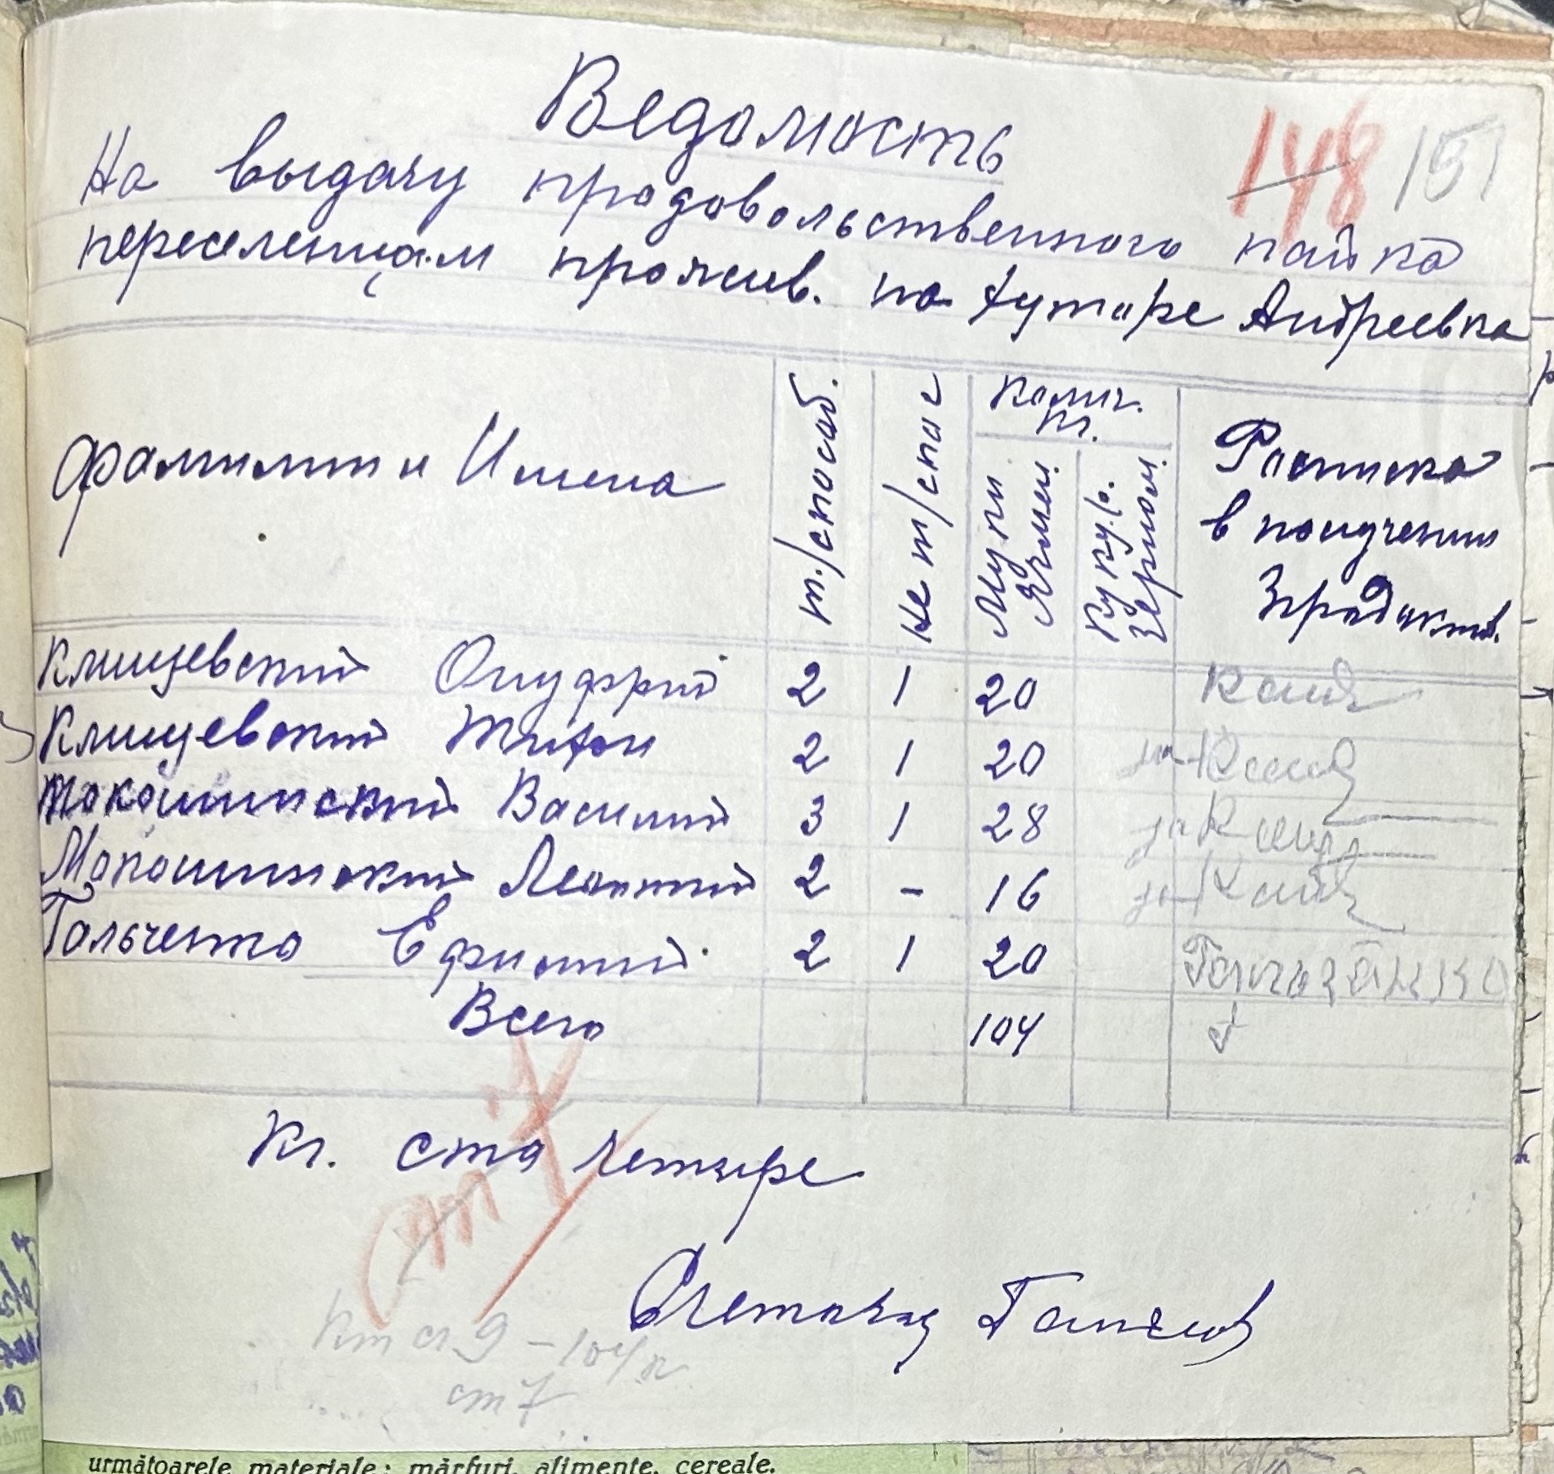 Ведомость
148 151
На выдачу продовольственного пайка
переселенцам прожив. на хуторе Андреевка
Фамилии и Имена
т./способ.
не т/спос
Колич. кг.
Муки Ячмен.
Кукур. зерном.
Расписка
в получении
продуктов.
Клищевский Онуфрий 2 1 20
Клищевский Тихон 2 1 20 за
Макошинский Василий 3 1 28 за
Макошинский Леонтий 2 - 16 за
Гальченко Ефимий 2 1 20
Всего 104
Кг. сто четыре
ст 7
Счетовод
9 - 104 к
ст 7
următoarele materiale: mărfuri, alimente, cereale.